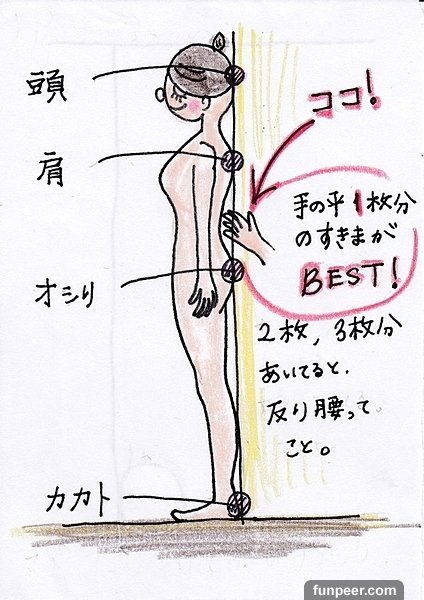 頭
肩
オシリ
カカト
ココ!
手の平1枚分
のすきまが
BEST!
2枚,3枚分
あいてると、
反り腰って
こと。
funpeer.com